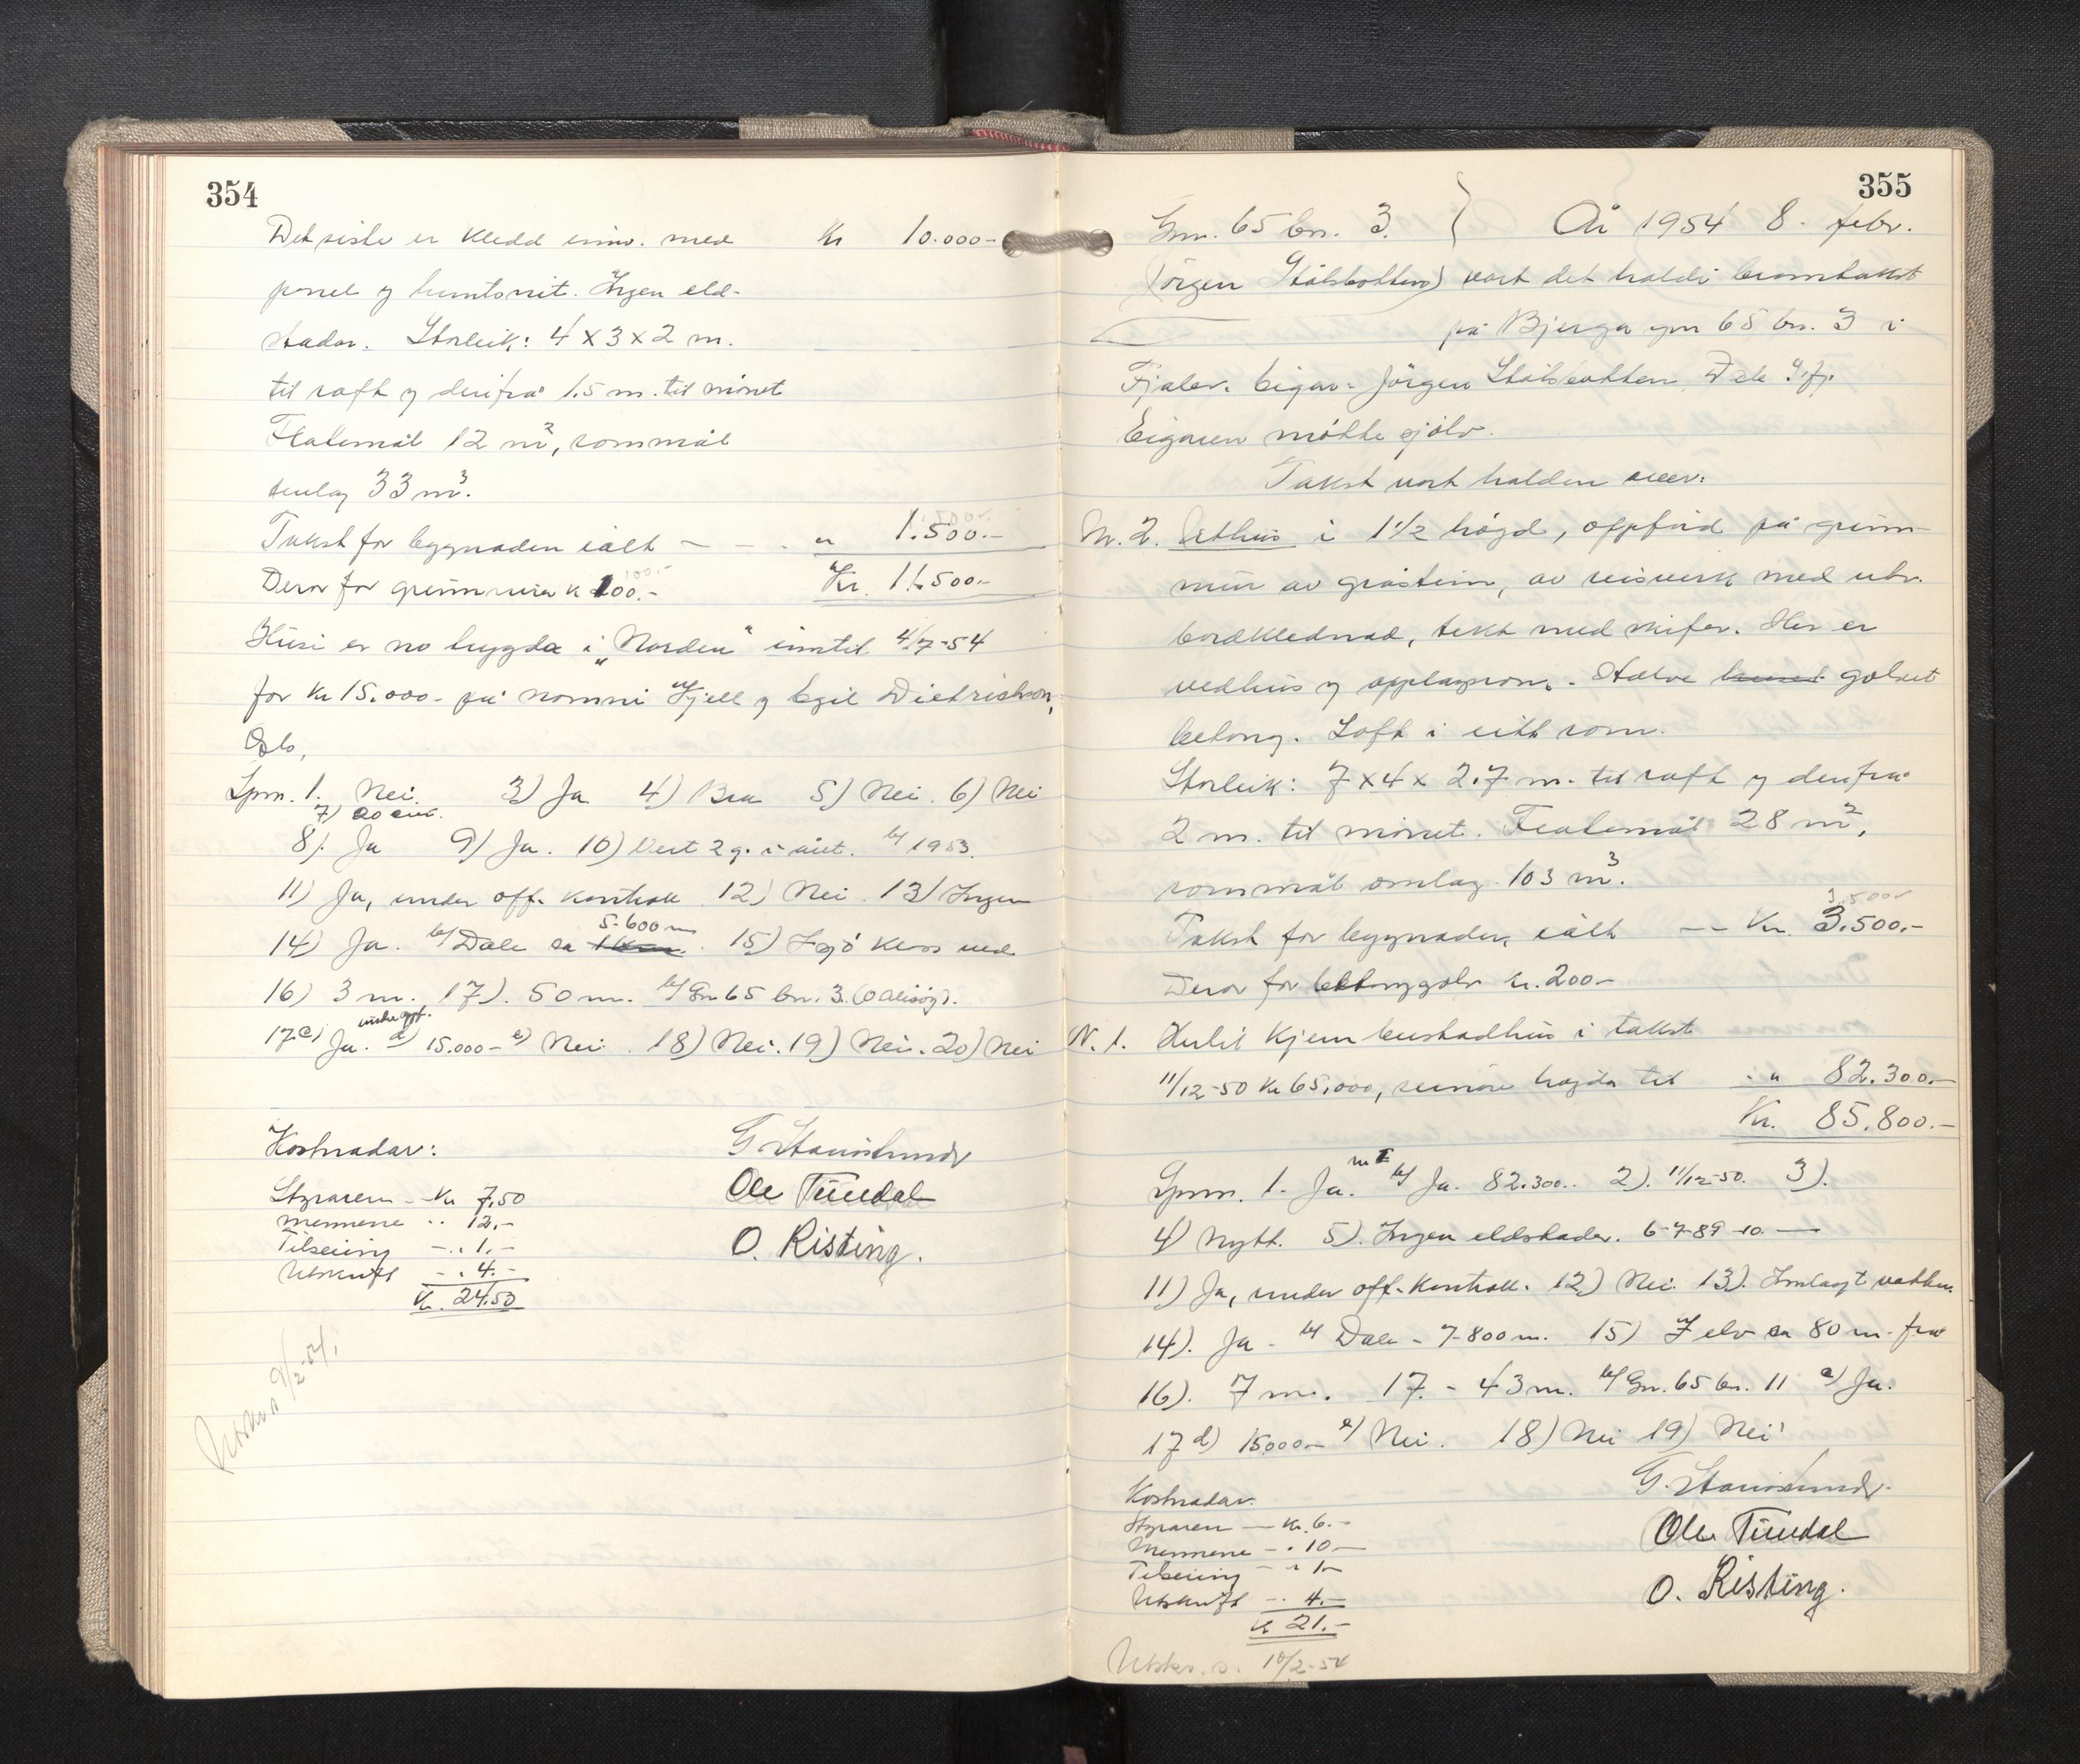 354
Det siste er kledd innv. med Kr 10.000-
panel og huntonit. Ingen eld-
stader. Storleik: 4 x 3 x 2 m.
til raft og derifrå 1.5 m. til mønet
Flatemål 12 m², rommål
omlag 33 m³.
Takst for bygnaden ialt - - . " 1.500.-
Derav for grunnmur kr 100.- Kr. 11.500.-
Husi er no trygda i "Norden" inntil 4/7-54
for kr 15.000- på namni Kjell og Egil Dietrichson,
Oslo,
Spm. 1. Nei. 3) Ja 4) Bra 5) Nei. 6) Nei
7) 20 cm.
8). Ja 9) Ja. 10) Vert 2 g. i året. b/ 1953.
11) Ja, under off. kontroll 12) Nei. 13) Ingen
5-600 m
14) Ja. b/ Dale ca 1 km. 15) I sjø kloss ved
16) 3 m. 17). 50 m. b/ Gn 65 bn. 3.
17.c) Ja. d) 15.000- e) Nei. 18) Nei. 19) Nei. 20) Nei
Kostnadar:
Styraren - Kr 7,50
Mennene .. 12.-
Tilseiing - . 1.-
Utskrift - . 4.-
Kr. 24.50
Ole Tundal
O. Risting.
Utskr. 9/2-54.
355
Gnr. 65 bn. 3. } År 1954 8. febr.
(Jørgen Stølsbotten) vart det haldi branntakst
på Bjerga gnr 65 bn. 3 i
Fjaler. Eigar: Jørgen Stølsbotten, Dale
Eigaren møtte sjølv.
Takst vart halden over:
Nr. 2. Uthus i 1 1/2 høgd, oppførd på grunn-
mur av gråstein, av reisverk med utv.
bordklednad, tekt med skifer. Her er
vedhus og opplagsrom. - Halve huset golvet
betong. Loft i eitt rom.
Storleik: 7 x 4 x 2.7 m. til raft og derifrå
2 m. til mønet. Flatemål 28 m²,
rommål omlag 103 m³.
3.500-
Takst for bygnaden ialt -- Kr. 3.500.-
Derav for betonggolv kr. 200-
N. 1. Hertil kjem bustadhus i takst
11/12-50 kr 65.000, seinare høgda til . " 82.300.-
Kr. 85.800.-
Spm. 1. Ja. b/ Ja. 82.300.. 2). 11/12-50. 3).
4) Nytt. 5). Ingen eldstader. 6-7-89-10. —
11) Ja, under off. kontroll. 12) Nei. 13). Innlagt vatten.
14). Ja - b/ Dale - 7-800 m. 15) I elv ca 80 m. frå
16). 7 m. 17. - 43 m. b/ Gn. 65 bn. 11 c) Ja.
17 d) 15000- e) Nei. 18) Nei 19) Nei
Kostnadar.
Styraren — Kr. 6.-
Mennene - . 10-
Tilseiing - " 1-
Utskrift - . 4.-
Kr 21.-
Ole Tundal
O. Risting.
Utskr. s. 10/2-54